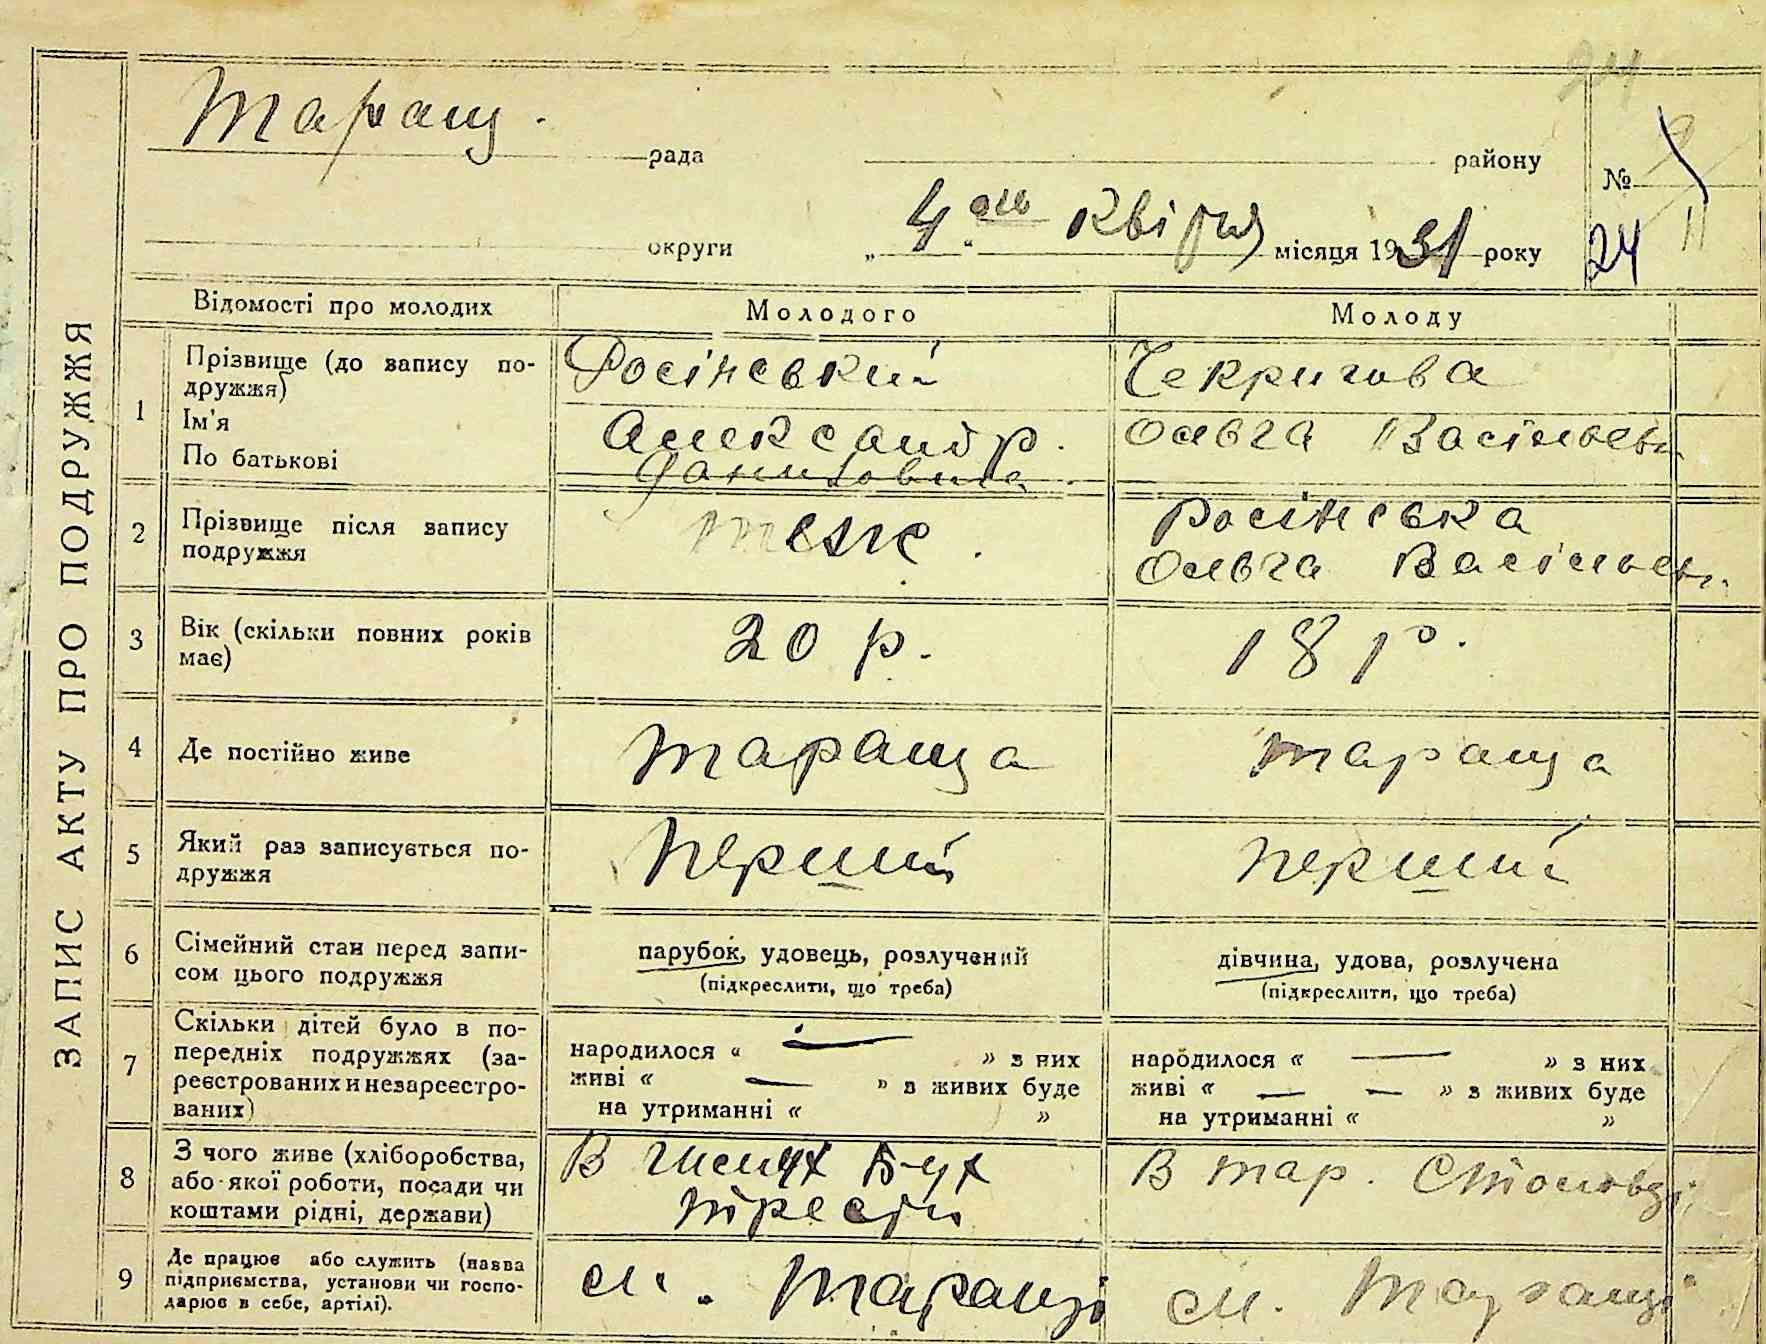 24
Таращ.
рада
району
№
округи
„4“ ого квітня місяця 1931 року
24 11
ЗАПИС АКТУ ПРО ПОДРУЖЖЯ
Відомості про молодих
Молодого
Молоду
1
Прізвище (до запису по-
дружжя)
Ім'я
По батькові
Росінський
Александр.
Данилович
Чекригова
Ольга Васільевн
2
Прізвище після запису
подружжя
теж.
Росінська
Ольга Васільевн.
3
Вік (скільки повних років
має)
20 р.
18 р.
4
Де постійно живе
Тараща
Тараща
5
Який раз записується по-
дружжя
Перший
перший
6
Сімейний стан перед запи-
сом цього подружжя
парубок, удовець, розлучений
(підкреслити, що треба)
дівчина, удова, розлучена
(підкреслити, що треба)
7
Скільки дітей було в по-
передніх подружжях (за-
реєстрованих и незареєстро-
ваних)
народилося “ — ” з них
живі “ — ” з живих буде
на утриманні “ ”
народилося “ — ” з них
живі “ — — ” з живих буде
на утриманні “ ”
8
З чого живе (хліборобства,
або якої роботи, посади чи
коштами рідні, держави)
В
тресті
В тар. Столовзі
9
Де працює або служить (назва
підприємства, установи чи госпо-
дарює в себе, артілі).
м. Таращі
м. Таращі